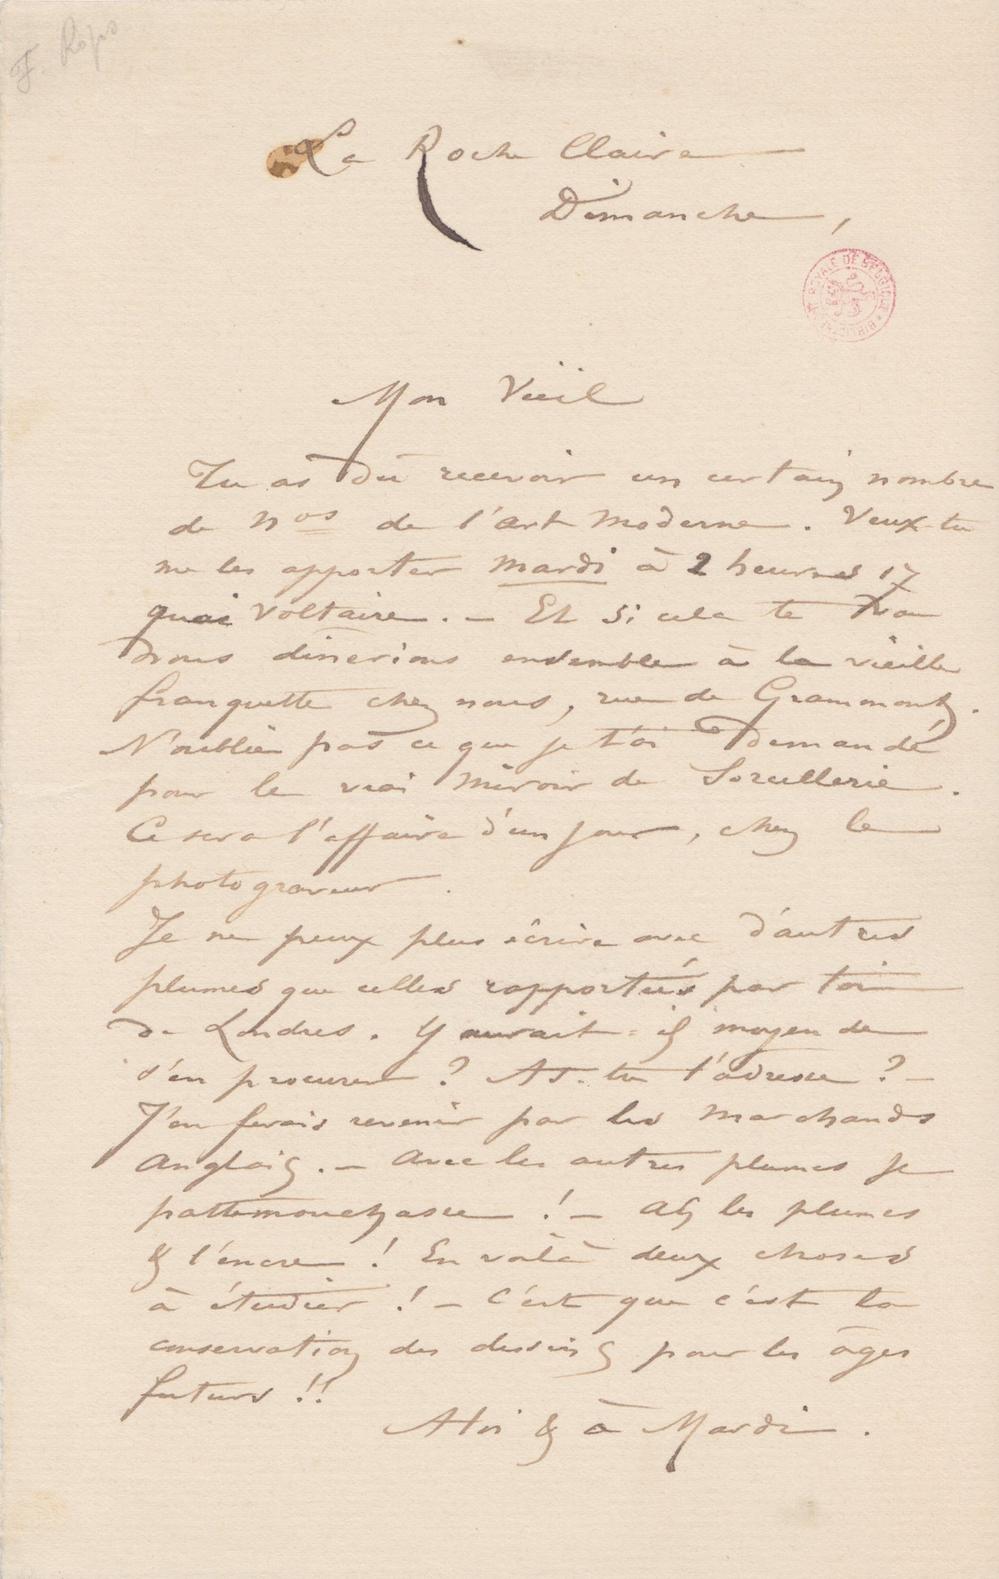 F. Rops
La Roche Claire
Dimanche,
BIBLIOTH. ROYALE DE BELGIQUE
Mon Vieil
Tu as dû recevoir un certain nombre
de nos de l'Art Moderne. Veux-tu
me les apporter mardi à 2 heures 17
quai Voltaire. — Et si cela te va
nous dinerions ensemble à la vieille
franquette chez nous, rue de Grammont.
N'oublie pas ce que je t'ai demandé
pour le vrai Miroir de Sorcellerie.
Ce sera l'affaire d'un jour, chez le
photograveur.
Je ne peux plus écrire avec d'autres
plumes que celles rapportées par toi
de Londres. Y aurait-il moyen de
s'en procurer ? As-tu l'adresse ? —
J'en ferais revenir par les marchands
anglais. — Avec les autres plumes je
pattemouchasse ! — Ah les plumes
& l'encre ! En voilà deux choses
à étudier ! — C'est que c'est la
conservation des dessins pour les âges
futurs !!
A toi & à Mardi.